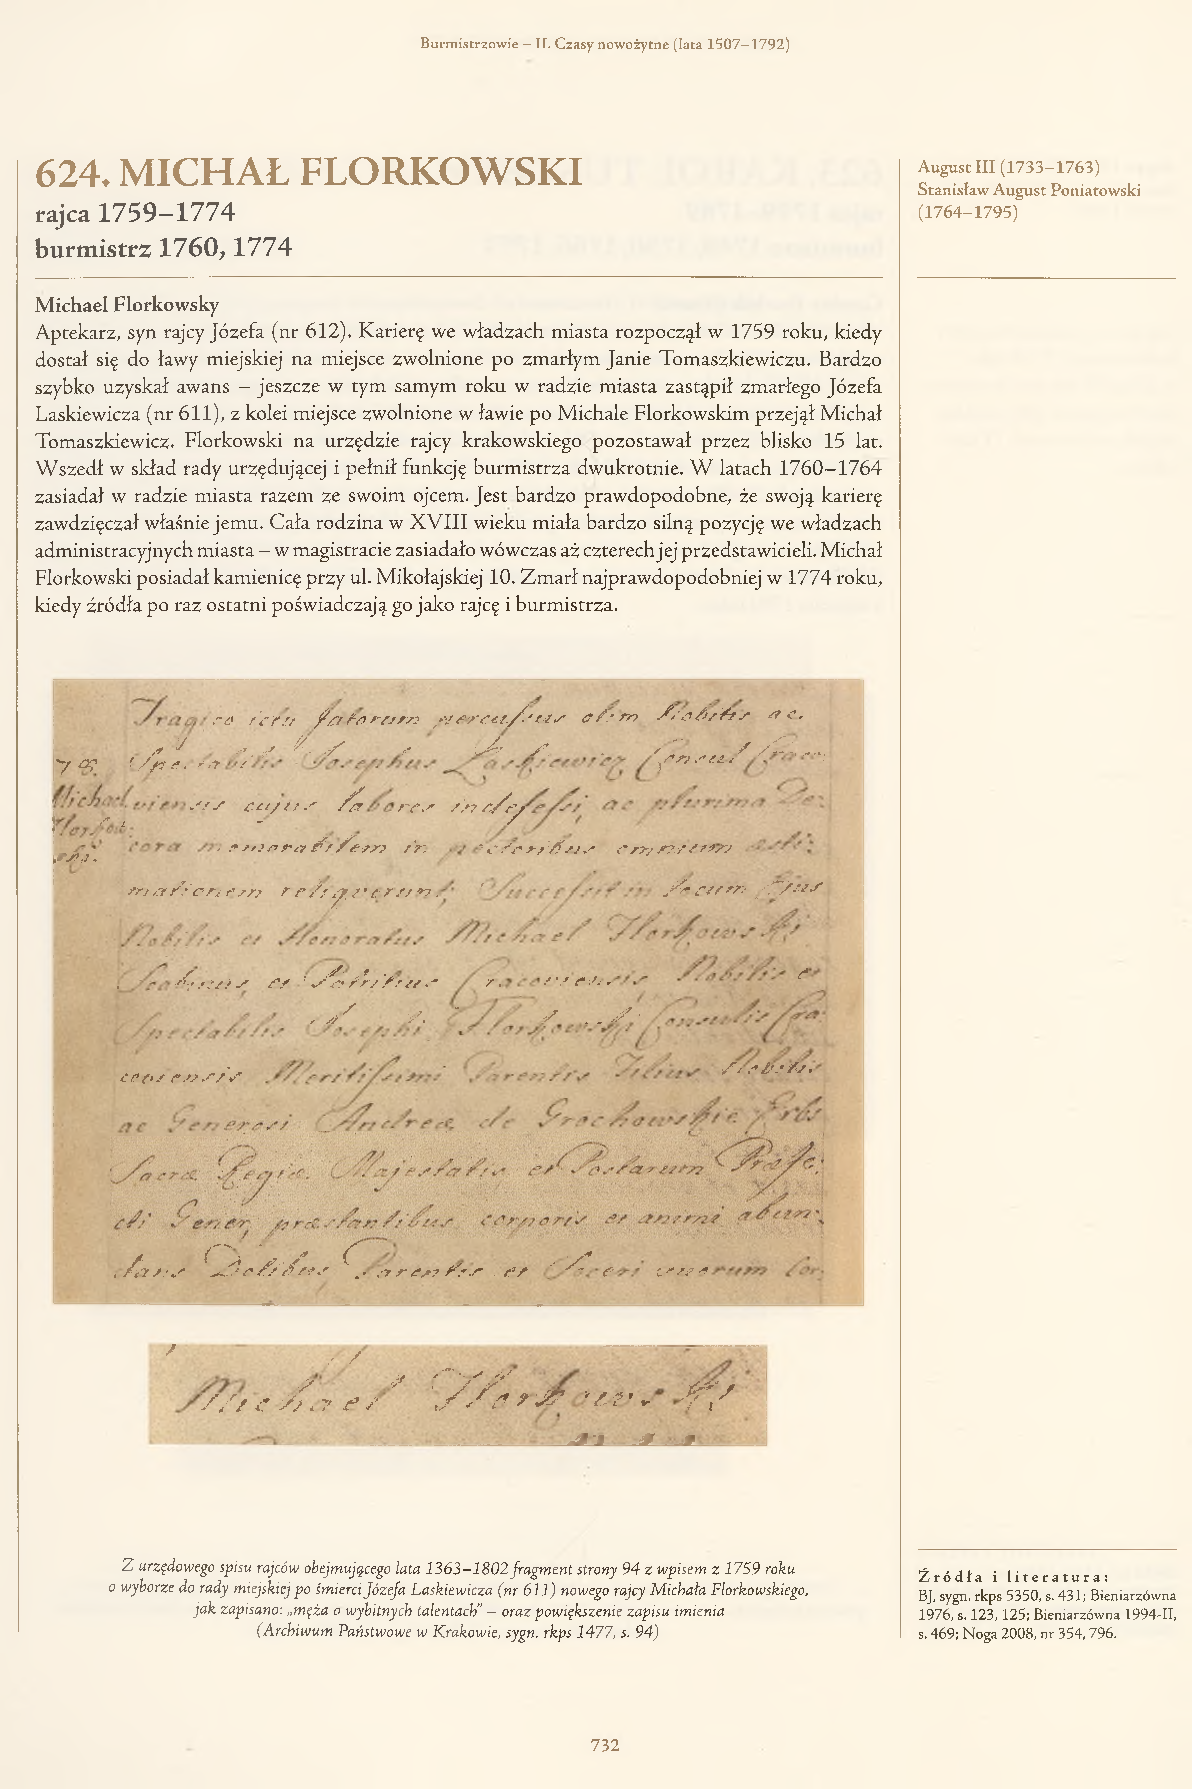 Burmistrzowie – II. Czasy nowożytne (lata 1507–1792)
624. MICHAŁ FLORKOWSKI
rajca 1759–1774
burmistrz 1760, 1774
August III (1733–1763)
Stanisław August Poniatowski
(1764–1795)
Michael Florkowsky
Aptekarz, syn rajcy Józefa (nr 612). Karierę we władzach miasta rozpoczął w 1759 roku, kiedy
dostał się do ławy miejskiej na miejsce zwolnione po zmarłym Janie Tomaszkiewiczu. Bardzo
szybko uzyskał awans – jeszcze w tym samym roku w radzie miasta zastąpił zmarłego Józefa
Laskiewicza (nr 611), z kolei miejsce zwolnione w ławie po Michale Florkowskim przejął Michał
Tomaszkiewicz. Florkowski na urzędzie rajcy krakowskiego pozostawał przez blisko 15 lat.
Wszedł w skład rady urzędującej i pełnił funkcję burmistrza dwukrotnie. W latach 1760–1764
zasiadał w radzie miasta razem ze swoim ojcem. Jest bardzo prawdopodobne, że swoją karierę
zawdzięczał właśnie jemu. Cała rodzina w XVIII wieku miała bardzo silną pozycję we władzach
administracyjnych miasta – w magistracie zasiadało wówczas aż czterech jej przedstawicieli. Michał
Florkowski posiadał kamienicę przy ul. Mikołajskiej 10. Zmarł najprawdopodobniej w 1774 roku,
kiedy źródła po raz ostatni poświadczają go jako rajcę i burmistrza.
Tragico ictu fatorum percussus olim Nobilis ac
Spectabilis Josephus Laskiewicz Consul Craco
78.
Michael
Florkow:
ski.
viensis cujus labores indefessi, ac plurima De:
cora memorabilem in pectoribus omnium æsti:
mationem reliqverunt; Successit in locum Ejus
Nobilis et Honoratus Michael Florkowski
Scabinus, et Patritius Cracoviensis, Nobilis et
Spectabilis Josephi Florkowski Consulis Cra:
coviensis Meritissimi Parentis Filius Nobilis
ac Generosi Andreæ de Grochowskie Erbs
Sacræ Regiæ Majestatis et Postarum Præfe:
cti Gener, præstantibus corporis et animi abun:
dans Dotibus Parentis et Soceri suorum Cor:
Michael Florkowski
Z urzędowego spisu rajców obejmującego lata 1363–1802 fragment strony 94 z wpisem z 1759 roku
o wyborze do rady miejskiej po śmierci Józefa Laskiewicza (nr 611) nowego rajcy Michała Florkowskiego,
jak zapisano: „męża o wybitnych talentach” – oraz powiększenie zapisu imienia
(Archiwum Państwowe w Krakowie, sygn. rkps 1477, s. 94)
Źródła i literatura:
BJ, sygn. rkps 5350, s. 431; Bieniarzówna
1976, s. 123, 125; Bieniarzówna 1994-II,
s. 469; Noga 2008, nr 354, 796.
732